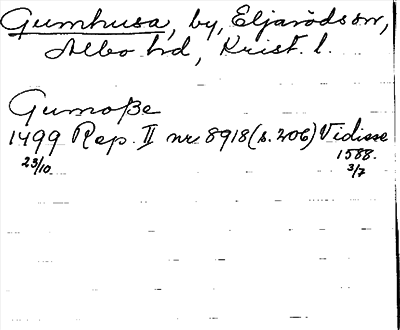 Gumhusa, by, Eljaröds sn,
Albo hd, Krist. l.
Gumoße
1499 Rep. II nr 8918 (s. 206) Vidisse
23/10. 1588.
3/7